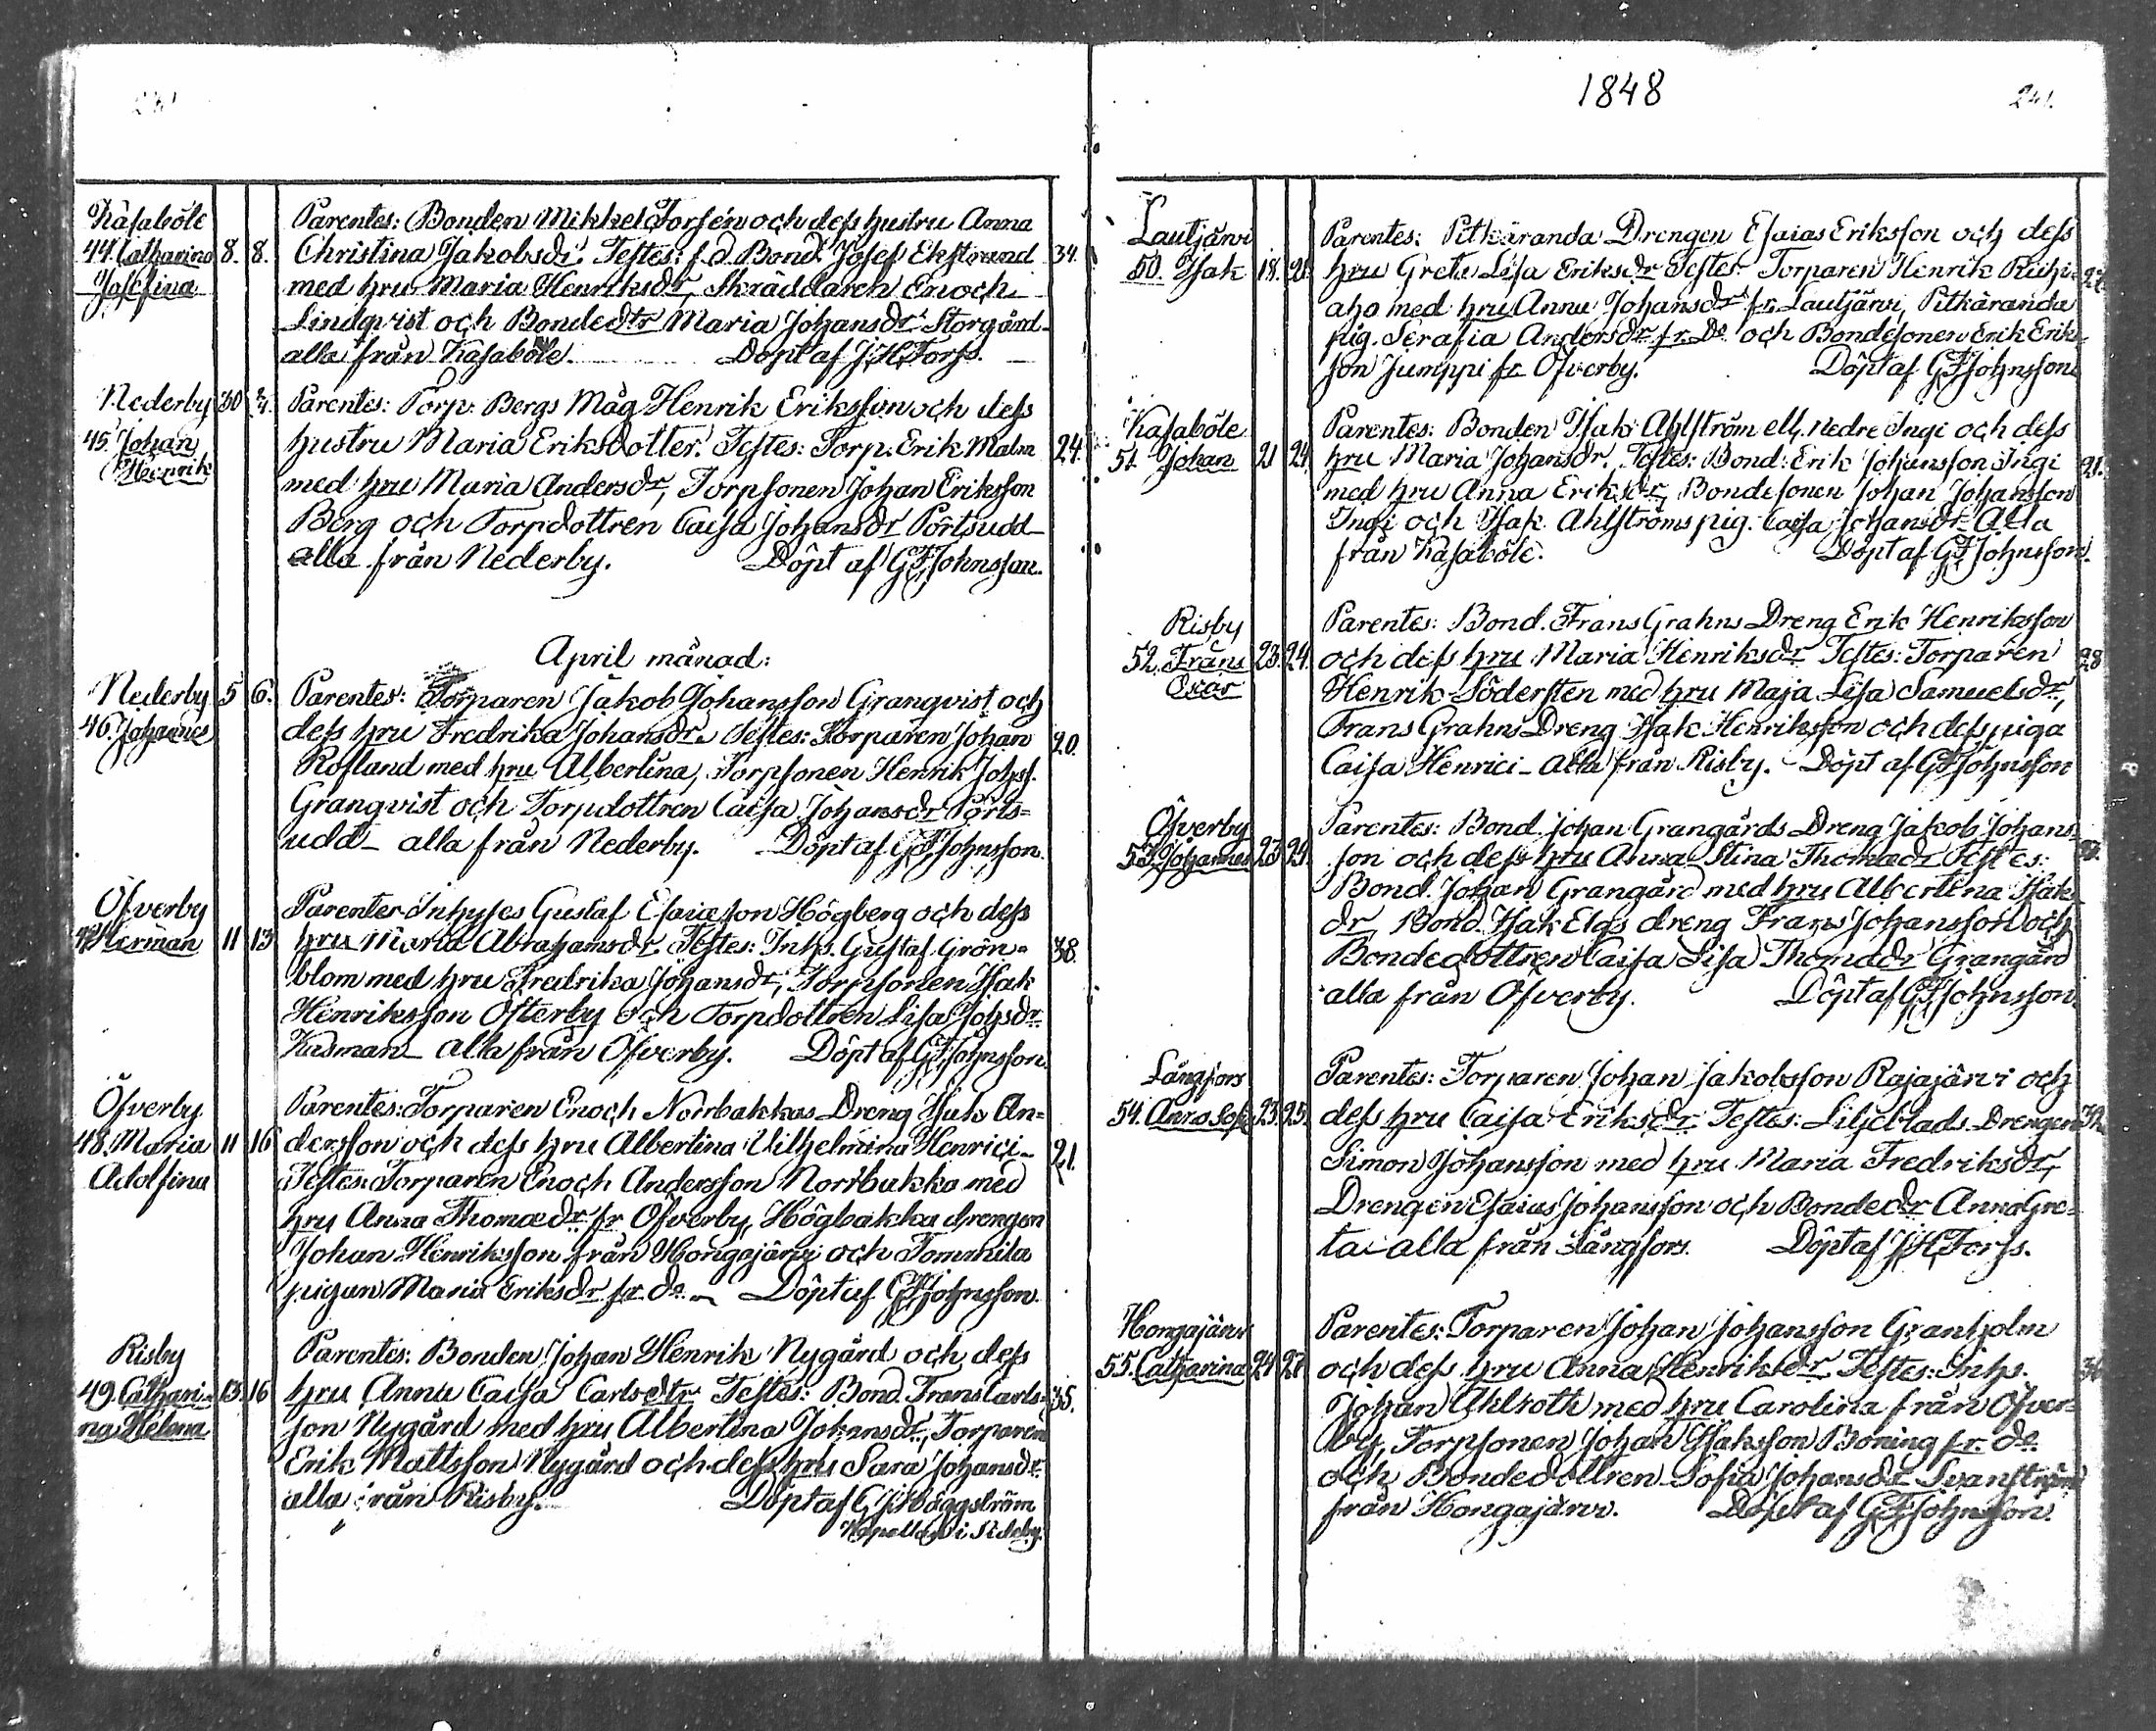 1848
241.
Kasaböle
44. Catharina 8. 8.
Josefina
Parentes: Bonden Mikkel Forsén och dess hustru Anna
Christina Jakobsdr. Testes: f.d. Bond. Josef Ekstrand 34.
med hru Maria Henriksdr, Skräddaren Enoch
Lindqvist och Bondedtr Maria Johansdr Storgård
alla från Kasaböle. Döpt af J.H. Forss.
Nederby 30 2/4.
45. Johan
Henrik
Parentes: Torp. Bergs Måg Henrik Eriksson och dess
hustru Maria Eriksdotter. Testes: Torp. Erik Malm 24.
med hru Maria Andersdr, Torpsonen Johan Eriksson
Berg och Torpdottren Caisa Johansdr Pörtsudd
alla från Nederby. Döpt af G.F. Johnsson.
April månad:
Nederby 5 6.
46. Johannes
Parentes: Torparen Jakob Johansson Granqvist och
dess hru Fredrika Johansdr. Testes: Torparen Johan 20.
Rosland med hru Albertina, Torpsonen Henrik Johss.
Granqvist och Torpdottren Caisa Johansdr Pörts=
udd – alla från Nederby. Döpt af G.F. Johnsson.
Öfverby
47. Herman 11 13
Parentes Inhyses Gustaf Esaiasson Högberg och dess
hru Maria Abrahamsdr Testes: Inhs. Gustaf Grön= 38.
blom med hru Fredrika Johansdr, Torpsonen Isak
Henriksson Österby och Torpdottren Lisa Johsdr
Kusman – alla från Öfverby. Döpt af G.F. Johnsson.
Öfverby
48. Maria 11 16
Adolfina
Parentes: Torparen Enoch Norrbakkas Dreng Isak An=
dersson och dess hru Albertina Wilhelmina Henrici – 21.
Testes: Torparen Enoch Andersson Norrbakka med
hru Anna Thomædr fr Öfverby, Högbakka drengen
Johan Henriksson från Hongajärvi och Tommila
pigan Maria Eriksdr fr. do – Döpt af G.F. Johnsson.
Risby
49. Cathari= 13. 16
na Helena
Parentes: Bonden Johan Henrik Nygård och dess
hru Anna Caisa Carlsdtr Testes: Bond. Frans Carls= 35.
son Nygård med hru Albertina Johansdr, Torparen
Erik Mattsson Nygård och dess hru Sara Johansdr
alla från Risby. Döpt af Häggström
Kapellan i Sideby.
Lautjärvi
50. Isak 18. 21.
Parentes: Pitkäranda Drengen Esaias Eriksson och dess
hru Greta Lisa Eriksdr Testes: Torparen Henrik Riihi=
aho med hru Anna Johansdr fr. Lautjärvi, Pitkäranda
pig. Serafia Andersdr fr. Do och Bondesonen Erik Eriks=
son Jumppi fr Öfverby. Döpt af G.F. Johnsson.
Kasaböle
51. Johan 21 24.
Parentes: Bonden Isak Ahlström ell. nedre Ingi och dess
hru Maria Johansdr. Testes: Bond: Erik Johansson Ingi 21.
med hru Anna Eriksdr, Bondesonen Johan Johansson
Ingi och Isak Ahlströms pig. Caisa Johansdr Alla
från Kasaböle. Döpt af G.F. Johnsson.
Risby
52. Frans 23. 24.
Oscar
Parentes: Bond. Frans Grahns Dreng Erik Henriksson
och dess hru Maria Henriksdr Testes: Torparen 28
Henrik Södersten med hru Maja Lisa Samuelsdr,
Frans Grahns Dreng Isak Henriksson och dess piga
Caisa Henrici – Alla från Risby. – Döpt af G.F. Johnsson
Öfverby
53. Johannes 23 24.
Parentes: Bond. Johan Grangårds Dreng Jakob Johans=
son och dess hru Anna Stina Thomædr Testes:
Bond. Johan Grangård med hru Albertina Isaks
dr, Bond. Isak Elgs dreng Frans Johansson och
Bondedottren Caisa Lisa Thomædr Grangård
alla från Öfverby. Döpt af G.F. Johnsson.
Långfors
54. Anna Sofi 23. 25.
Parentes: Torparen Johan Jakobsson Rajajärvi och
dess hru Caisa Eriksdr Testes: Liljeblads Drengen
Simon Johansson med hru Maria Fredriksdr,
Drengen Esaias Johansson och Bondedr Anna Gre=
ta – alla från Långfors. Döpt af J.H. Forss.
Hongajärvi
55. Catharina 24 27.
Parentes: Torparen Johan Johansson Granholm
och dess hru Anna Henriksdr Testes: Inhs.
Johan Ahlroth med hru Carolina från Öfver=
by, Torpsonen Johan Isaksson Böning fr. do
och Bondedottren Sofia Johansdr Svanström
från Hongajärvi. Döpt af G.F. Johnsson.